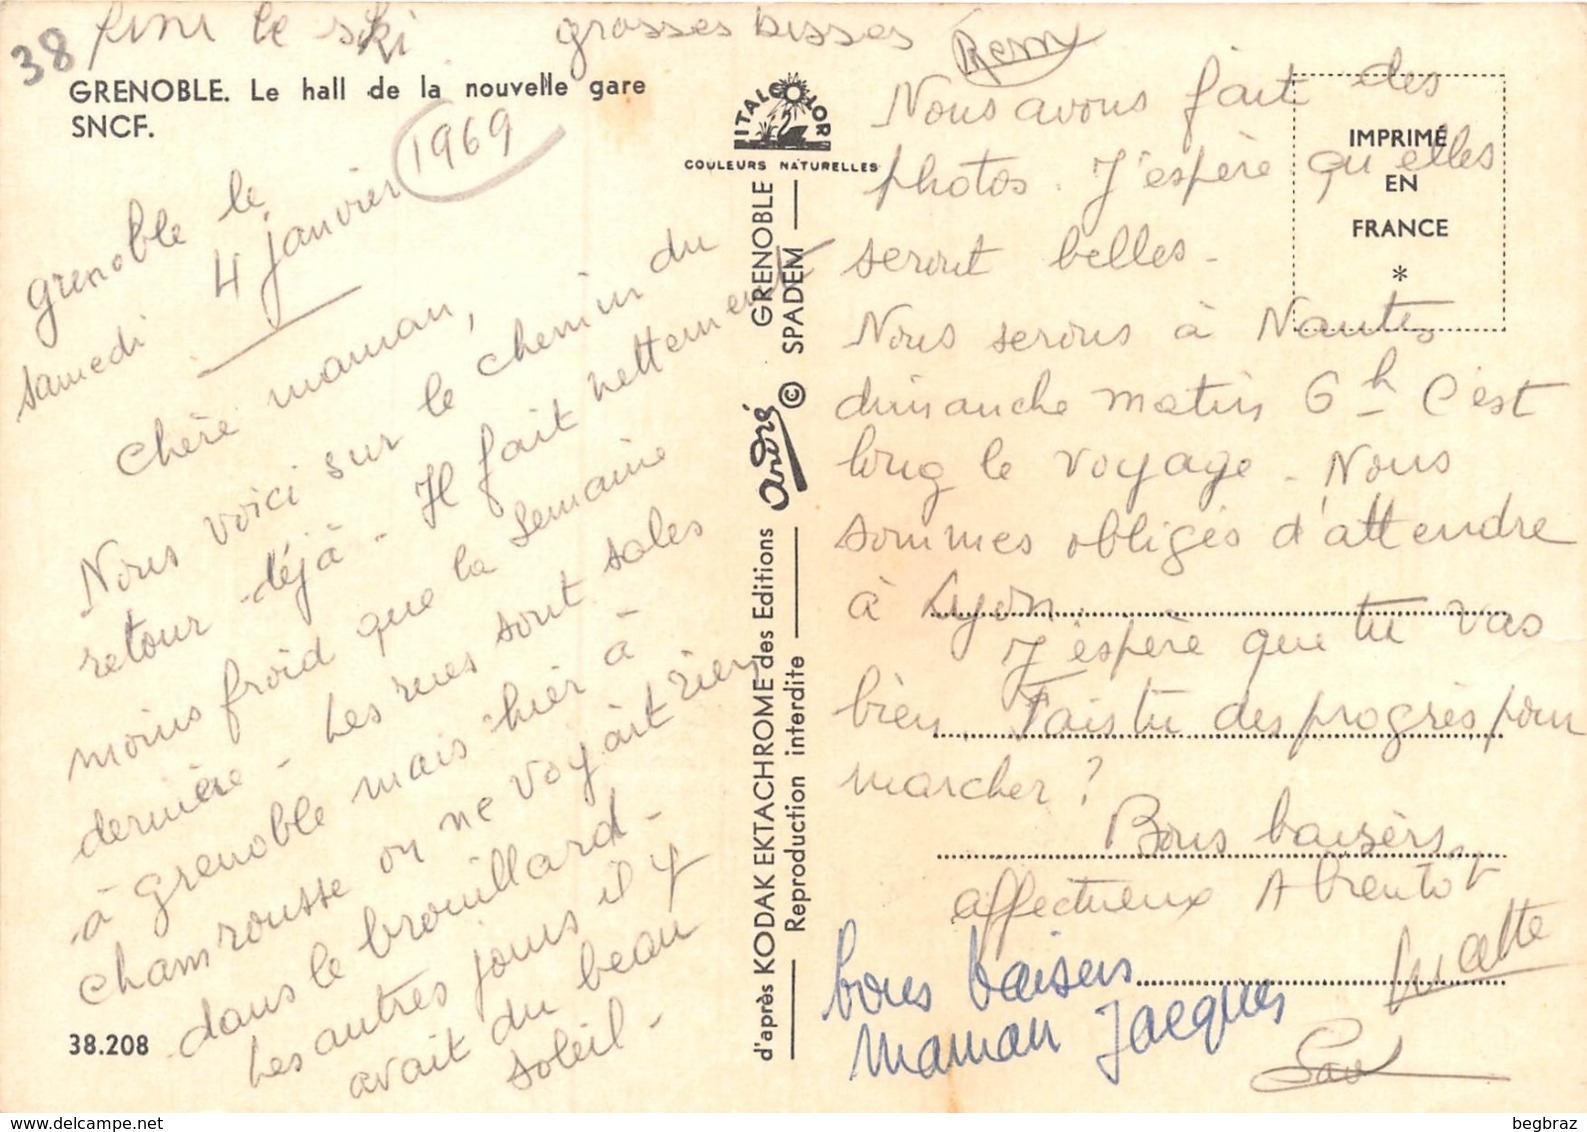 38
fini le ski grosses bisses Rémy
GRENOBLE. Le hall de la nouvelle gare
SNCF.
1969
grenoble le
samedi 4 janvier
Chère maman,
Nous voici sur le chemin du
retour déjà - Il fait nettement
moins froid que la semaine
dernière - Les rues sont sales
à grenoble mais hier à
chamrousse on ne voyait rien
dans le brouillard -
Les autres jours il y
avait du beau
soleil -
38.208
ITALCOLOR
COULEURS NATURELLES
GRENOBLE
SPADEM
©
André
d'après KODAK EKTACHROME des Editions
Reproduction interdite
IMPRIMÉ
EN
FRANCE
*
Nous avons fait des
photos. J'espère qu'elles
seront belles -
Nous serons à Nantes
dimanche matin 6h C'est
long le voyage - Nous
sommes obligés d'attendre
à Lyon.
J'espère que tu vas
bien. Fais tu des progrès pour
marcher ?
Bons baisers
affectueux A bientot
bons baisers
maman Jacques
begbraz